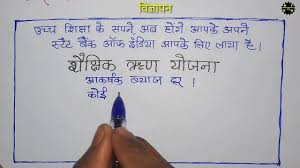 विज्ञापन
उच्च शिक्षा के सपने, अब होगें आपके अपने
स्टैट बैंक ऑफ इंडिया आपके लिए लाया है।
शैक्षिक ऋण योजना
आकर्षक ब्याज दर !
कोई